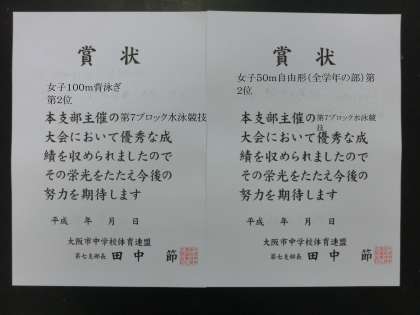 賞状
女子100m背泳ぎ
第2位
本支部主催の第7ブロック水泳競技
大会において優秀な成
績を収められましたので
その栄光をたたえ今後の
努力を期待します
平成 年 月 日
大阪市中学校体育連盟
第七支部長 田中 節
賞状
女子50m自由形(全学年の部)第
2位
本支部主催の第7ブロック水泳競
技
大会において優秀な成
績を収められましたので
その栄光をたたえ今後の
努力を期待します
平成 年 月 日
大阪市中学校体育連盟
第七支部長 田中 節